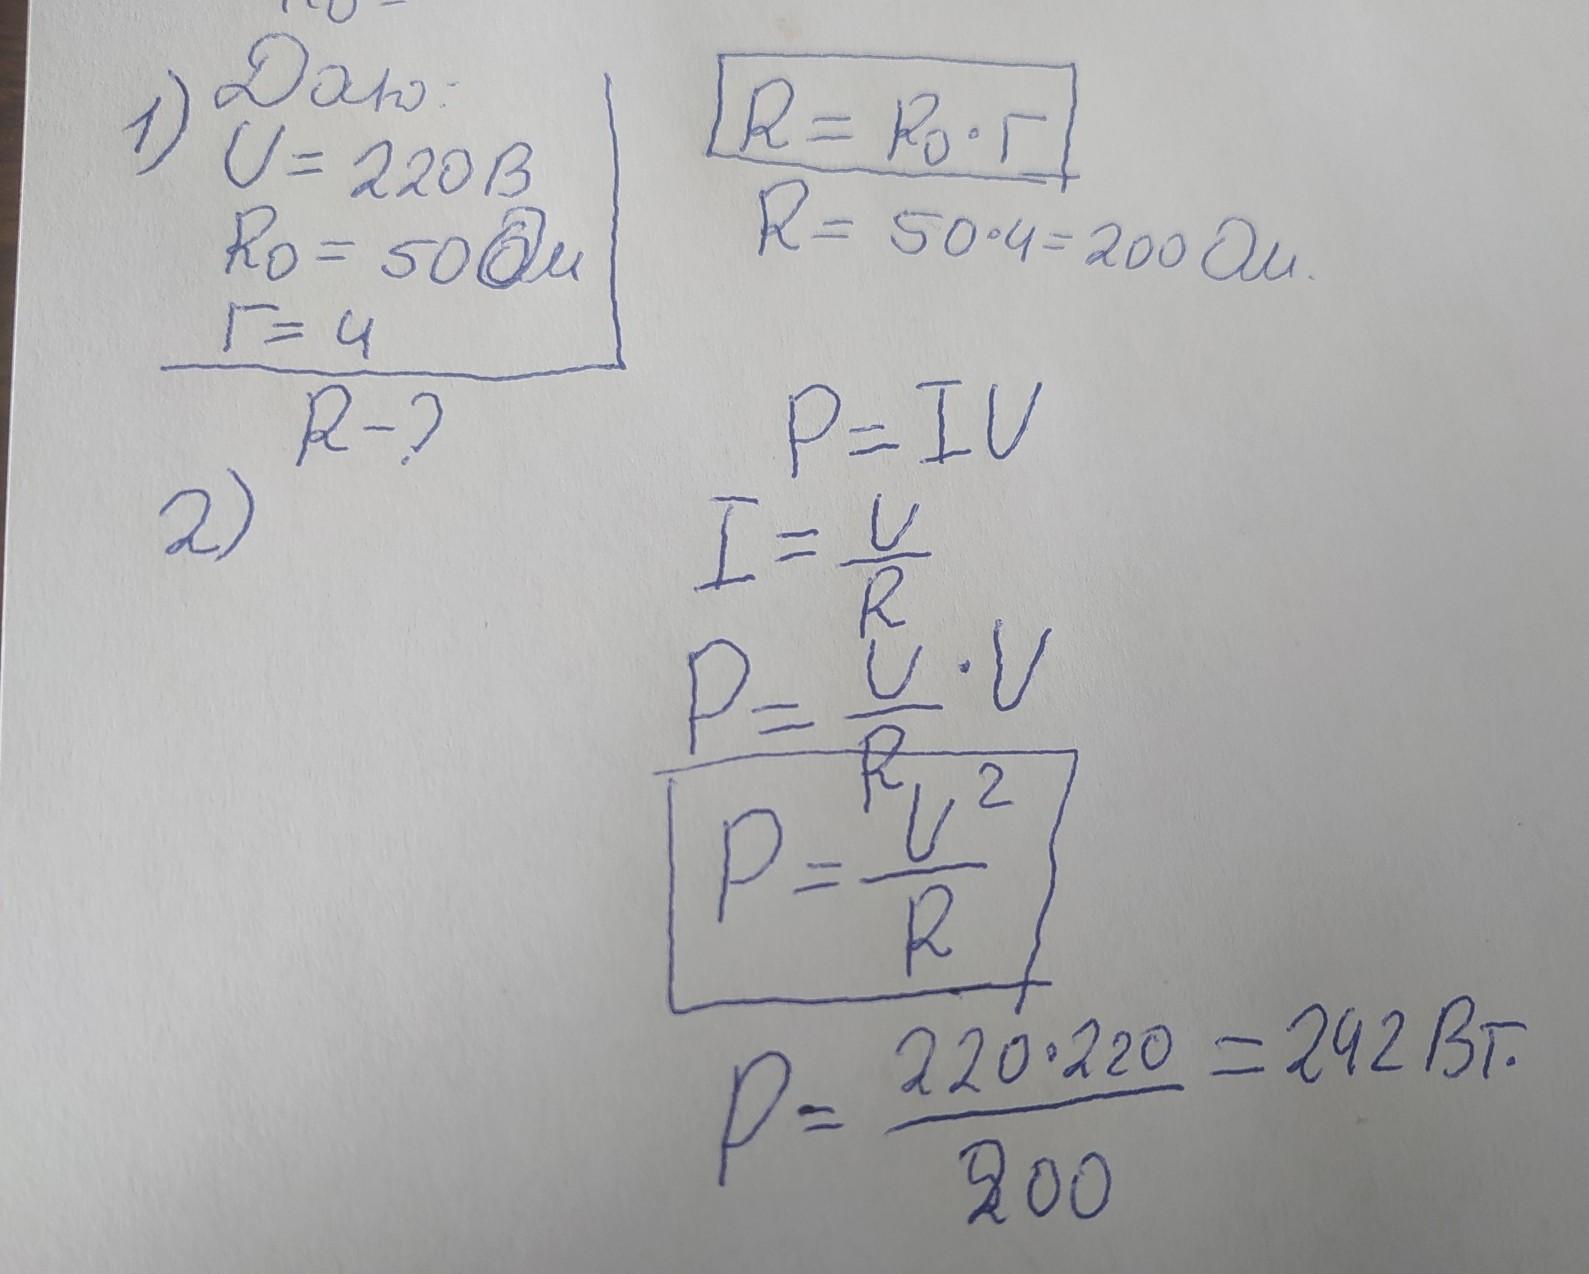 R0 =
1) Дано:
U = 220В
R0 = 50 Ом
Г = 4
R-?
R = R0·Г
R = 50·4=200 Ом.
2)
P=IU
I = U/R
P = U/R · U
P = U²/R
P = 220·220/200 = 242 Вт.